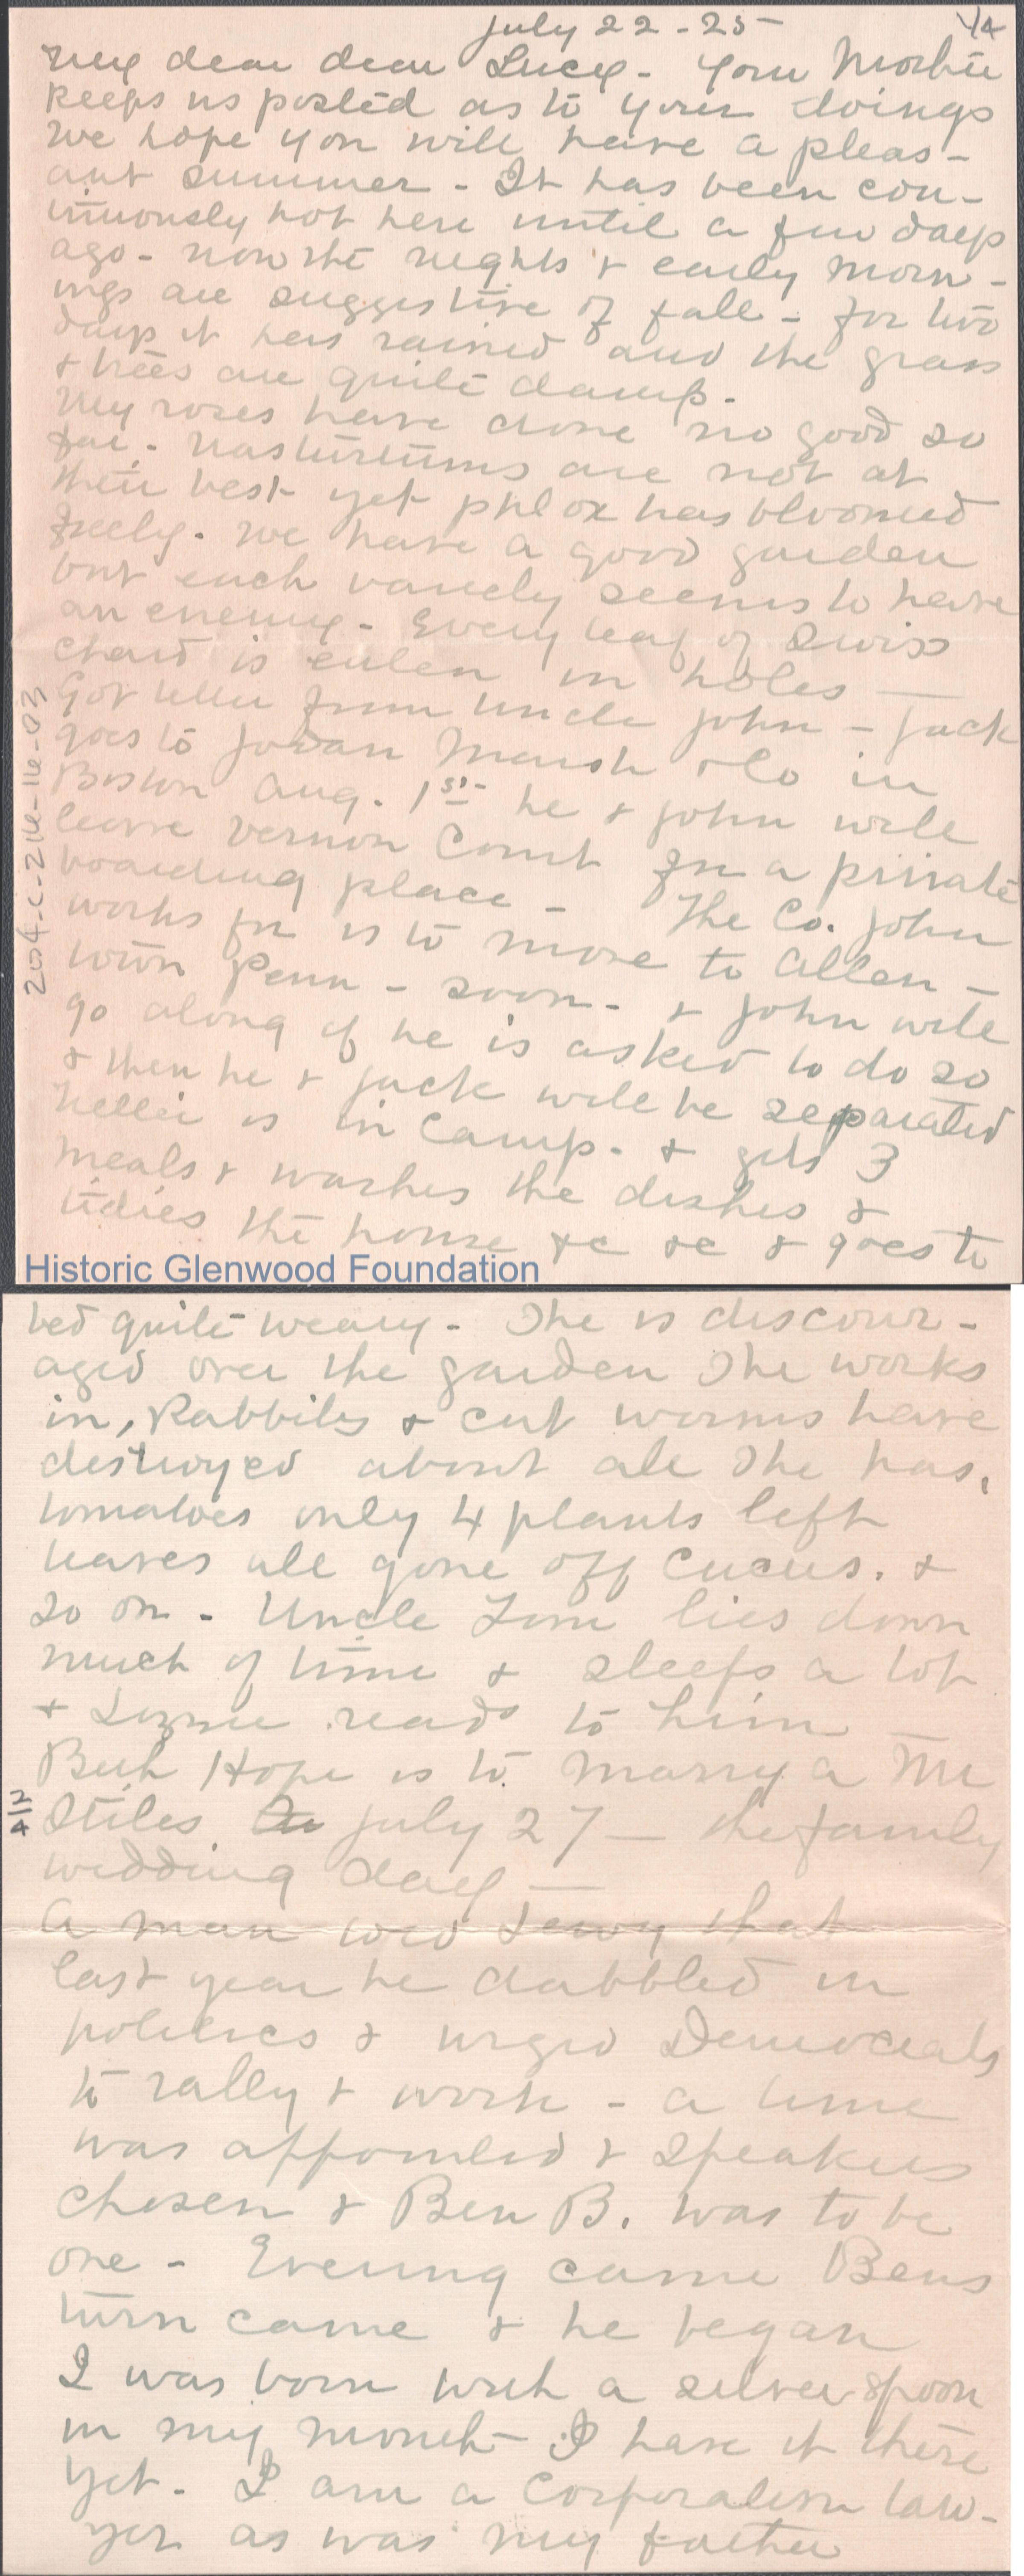 July 22-25- 1/4
My dear dear Lucy - Your Mother
keeps us posted as to your doings
We hope you will have a pleas-
ant summer - It has been con-
tinuously hot here until a few days
ago - now the nights & early morn-
ings are suggestive of fall - for two
days it has rained and the grass
& trees are quite damp.
My roses have done no good so
far. nasturtiums are not at
their best yet phlox has bloomed
freely. We have a good garden
but each variety seems to have
an enemy - Every leaf of Swiss
chard is eaten in holes —
Got letter from Uncle John - Jack
goes to Jordan Marsh & Co in
Boston Aug. 1st he & John will
leave Vernon Court for a private
boarding place - The Co. John
works for is to move to Allen-
town Penn - soon - & John will
go along if he is asked to do so
& then he & Jack will be separated
Nellie is in Camp. & gets 3
meals & washes the dishes &
tidies the house &c &c & goes to
2004-C-216-116-03
Historic Glenwood Foundation
bed quite weary - She is discour-
aged over the garden she works
in, Rabbits & cut worms have
destroyed about all she has,
tomatoes only 4 plants left
leaves all gone off cucus. &
so on - Uncle Tom lies down
much of time & sleeps a lot
& Lizzie reads to him —
Beth Hope is to marry a Mr
Stiles. On July 27 — the family
wedding day —
2/4
A man told that
last year he dabbled in
politics & urged Democrats
to rally & work - a time
was appointed & speakers
chosen & Ben B. was to be
one - Evening came Bens
turn came & he began
I was born with a silver spoon
in my mouth - I have it there
yet - I am a corporation law-
yer as was my father